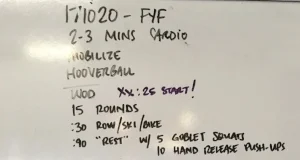 171020 - FYF
2-3 MINS CARDIO
MOBILIZE
HOOVERBALL
WOD XX:25 START!
15 ROUNDS
:30 ROW/SKI/BIKE
:90 "REST" W/ 5 GOBLET SQUATS
10 HAND RELEASE PUSH-UPS